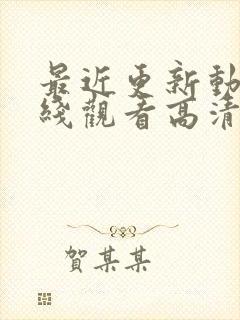 最近更新動
綫觀看高清
賀某某